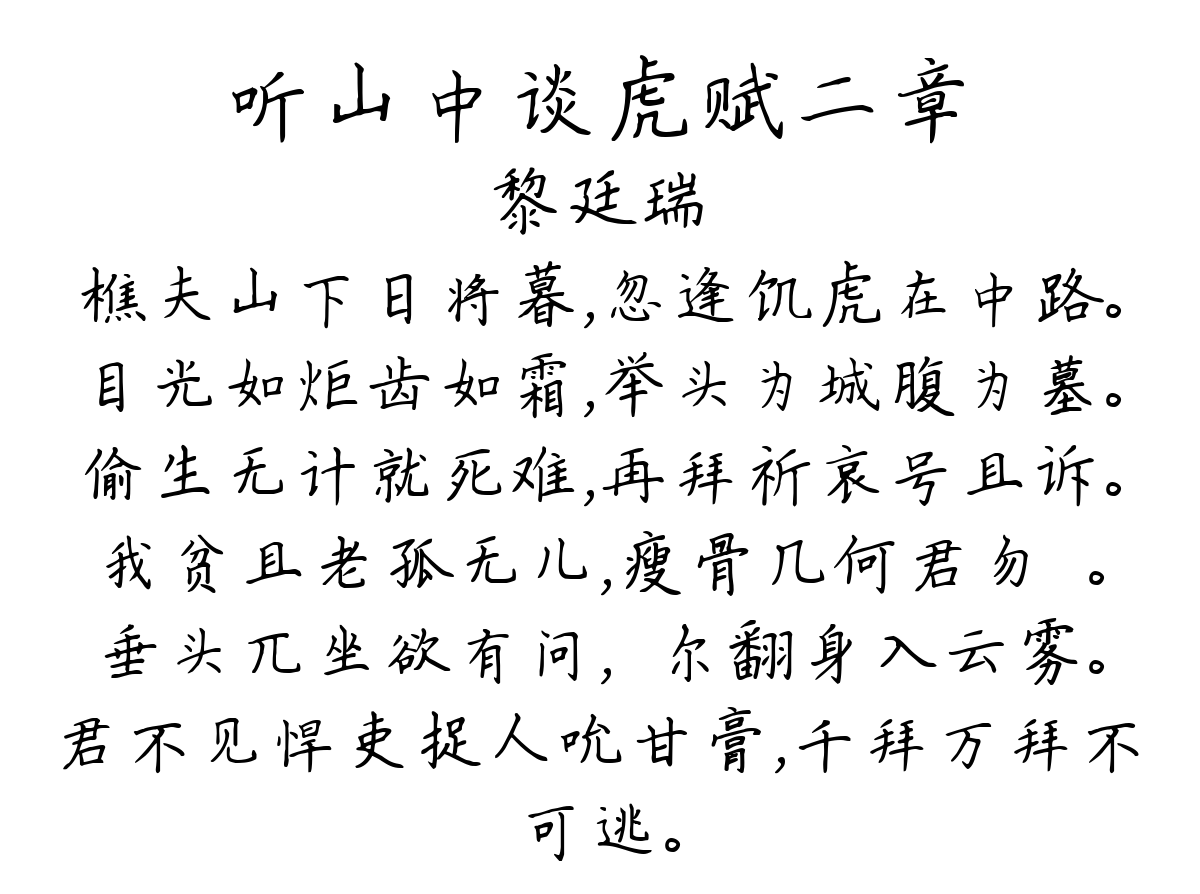 听山中谈虎赋二章
黎廷瑞
樵夫山下日将暮,忽逢饥虎在中路。
目光如炬齿如霜,举头为城腹为墓。
偷生无计就死难,再拜祈哀号且诉。
我贫且老孤无儿,瘦骨几何君勿 。
垂头兀坐欲有问，尔翻身入云雾。
君不见悍吏捉人吮甘膏,千拜万拜不
可逃。